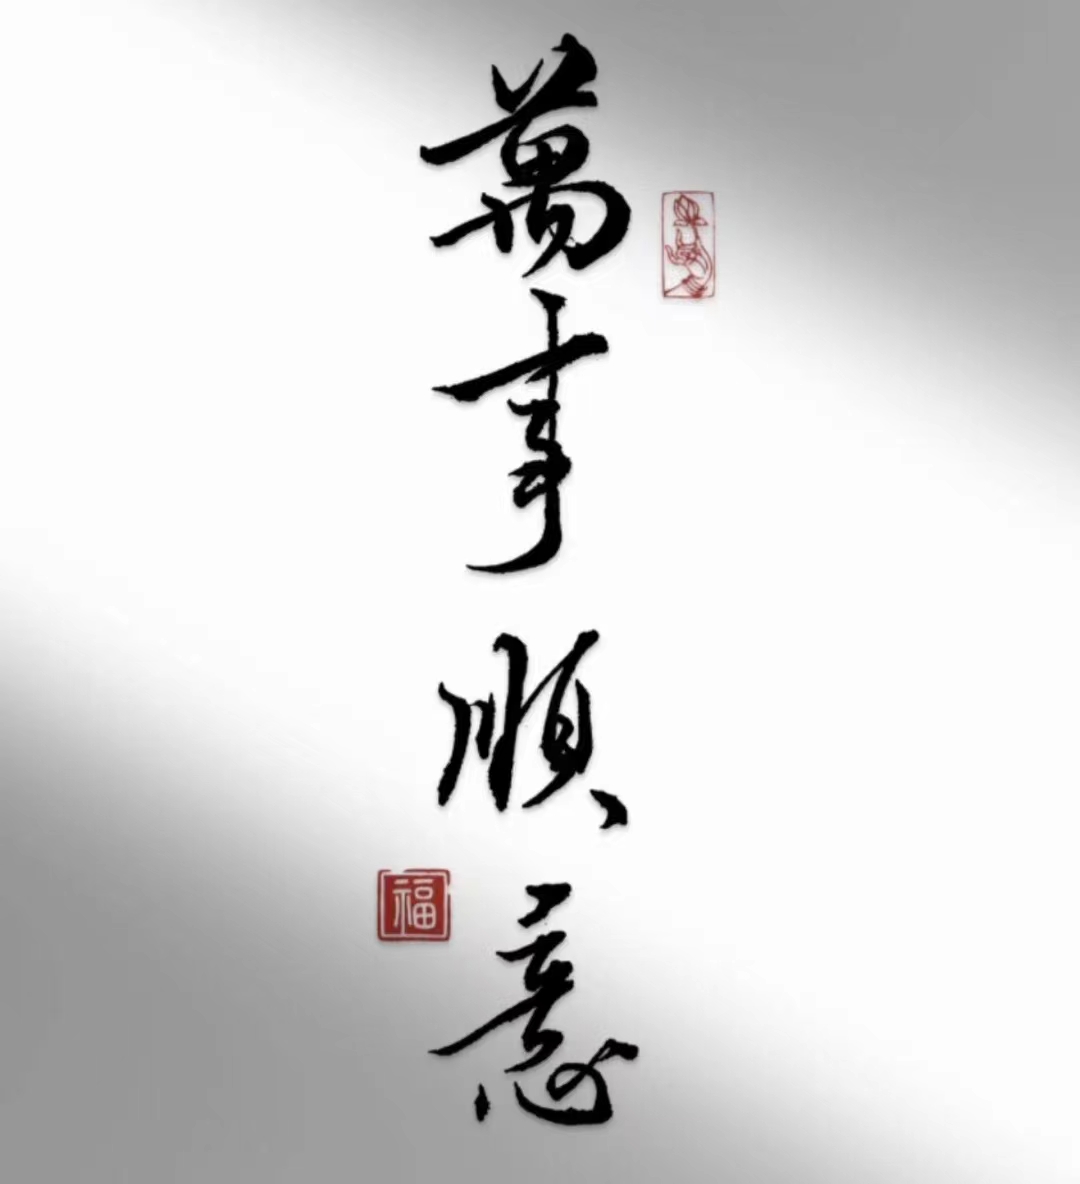 萬事順意
福